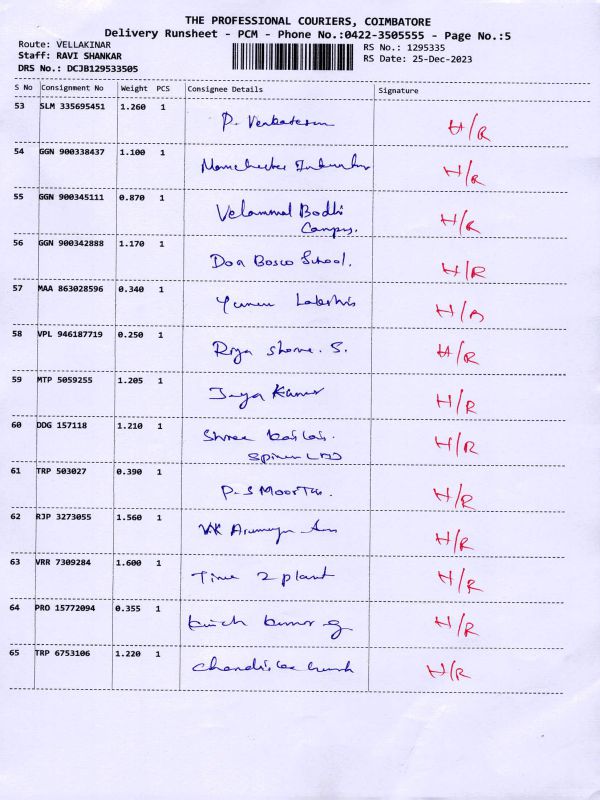 THE PROFESSIONAL COURIERS, COIMBATORE
Delivery Runsheet - PCM - Phone No.:0422-3505555 - Page No.:5
Route: VELLAKINAR
Staff: RAVI SHANKAR
DRS No.: DCJB129533505
RS No.: 1295335
RS Date: 25-Dec-2023
S No Consignment No Weight PCS Consignee Details Signature
53 SLM 335695451 1.260 1 P. Venkatesan H/R
54 GGN 900338437 1.100 1 H/R
55 GGN 900345111 0.870 1 Velammal Bodhi H/R
Campus.
56 GGN 900342888 1.170 1 Don Bosco School. H/R
57 MAA 863028596 0.340 1 H/R
58 VPL 946187719 0.250 1 S. H/R
59 MTP 5059255 1.205 1 Jeya Kumar H/R
60 DDG 157118 1.210 1 Shree H/R
61 TRP 503027 0.390 1 P.S Moorthi. H/R
62 RJP 3273055 1.560 1 VK H/R
63 VRR 7309284 1.600 1 Time 2 plant H/R
64 PRO 15772094 0.355 1 kumar g H/R
65 TRP 6753106 1.220 1 H/R